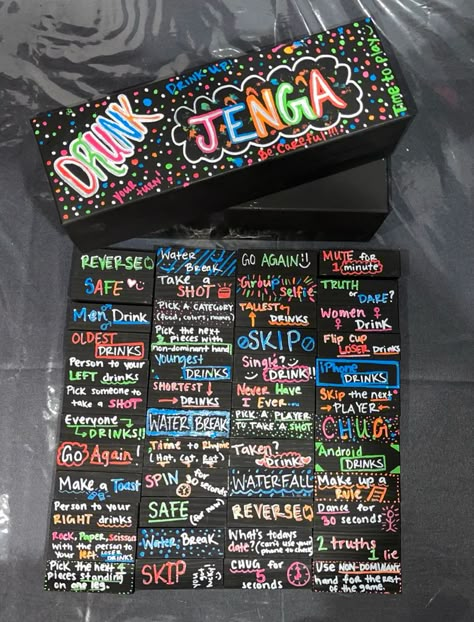 DRINK UP!
DRUNK
JENGA
Time to play!
YOUR TURN!
Be Careful!!!
REVERSE
SAFE
Men Drink
OLDEST
DRINKS
Person to your
LEFT drinks
Pick someone to
take a SHOT
Everyone
DRINKS!!
Go Again!
Make a Toast
Person to your
RIGHT drinks
Rock, Paper, Scissor
with the person to
your LEFT LOSER DRINKS
Pick the next 4
pieces standing
on one leg.
Water
Break
Take a
SHOT
PICK A CATEGORY
(food, colors, names)
Pick the next
2 pieces with
non-dominant hand
youngest
DRINKS
SHORTEST
DRINKS
WATER BREAK
Time to Rhyme
(Hat, Cat, Rat)
SPIN for 30
seconds
SAFE (for now)
Water Break
SKIP
GO AGAIN!
Group
Selfie
TALLEST
DRINKS
SKIP
Single?
DRINK!!
Never Have
I Ever...
PICK A PLAYER
TO TAKE A SHOT
Taken?
Drink
WATERFALL
REVERSE
What's todays
date? (can't use your
phone to check)
CHUG for
5
seconds
MUTE for
1 minute
TRUTH
or DARE?
Women
Drink
Flip Cup
LOSER Drinks
iPhone
DRINKS
Skip the next
PLAYER
CHUG
Android
DRINKS
Make up a
Rule
Dance for
30 seconds
2 truths
1 lie
Use NON-DOMINANT
hand for the rest
of the game.